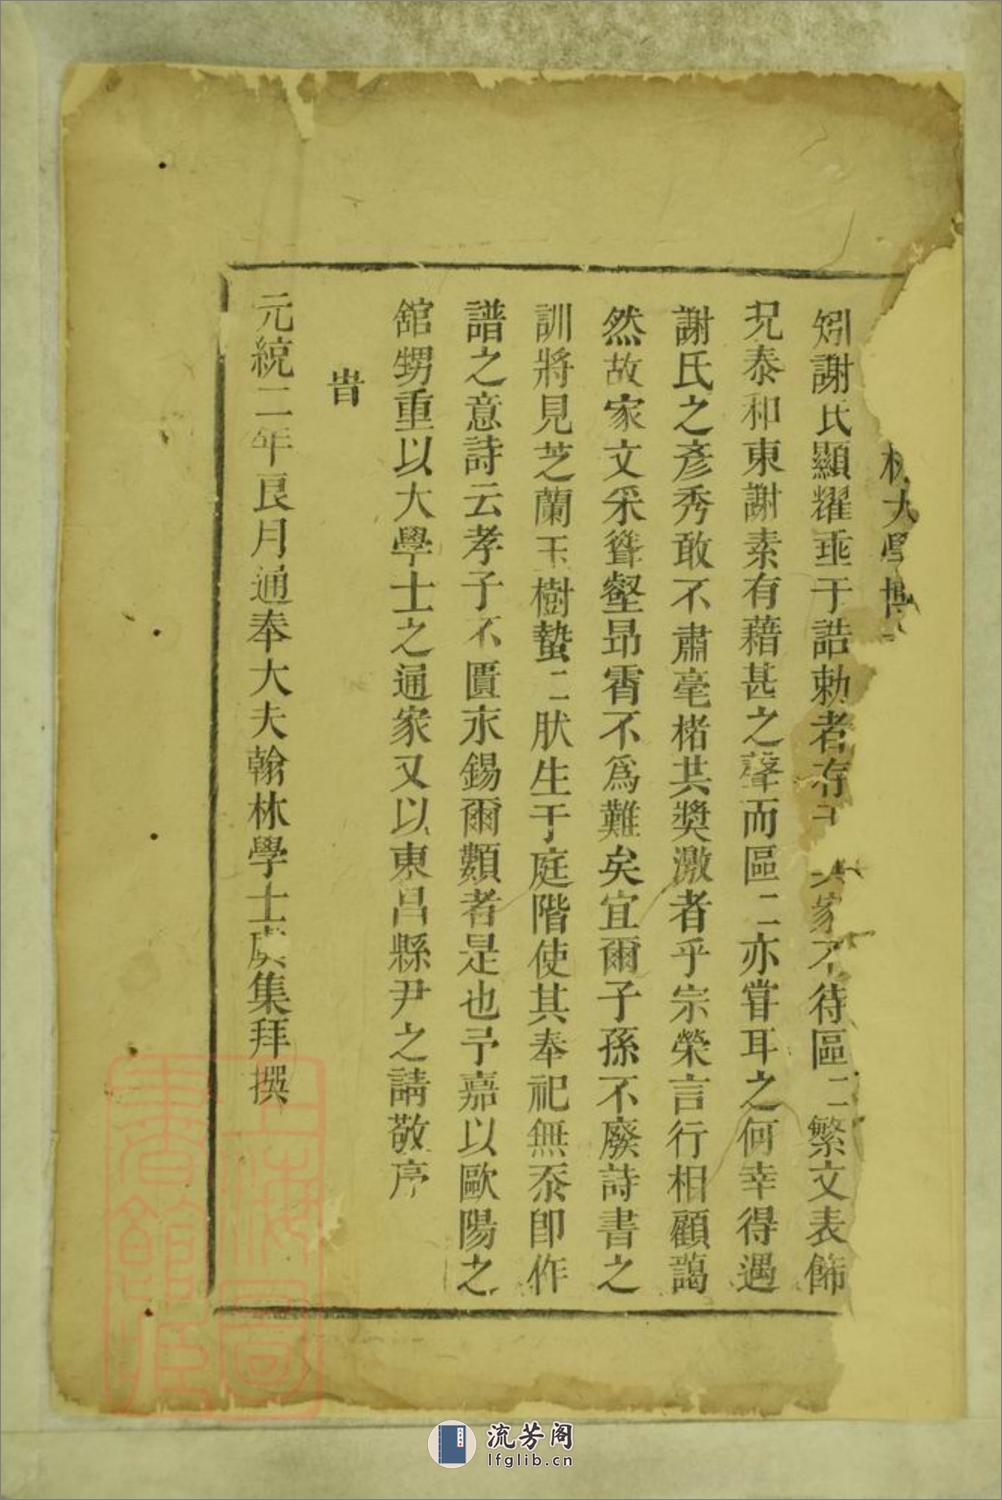 林大學博
矧謝氏顯耀垂于誥勅者存 家不待區二繁文表飾
況泰和東謝素有藉甚之聲而區二亦嘗耳之何幸得遇
謝氏之彥秀敢不肅毫楮共奬激者乎宗榮言行相顧藹
然故家文采聳壑昂霄不爲難矣宜爾子孫不廢詩書之
訓將見芝蘭玉樹蟄二肰生于庭階使其奉祀無忝卽作
譜之意詩云孝子不匱永錫爾類者是也予嘉以歐陽之
舘甥重以大學士之通家又以東昌縣尹之請敬序
旹
元統二年良月通奉大夫翰林學士虞集拜撰
上海圖書館藏
流芳阁
lfglib.cn